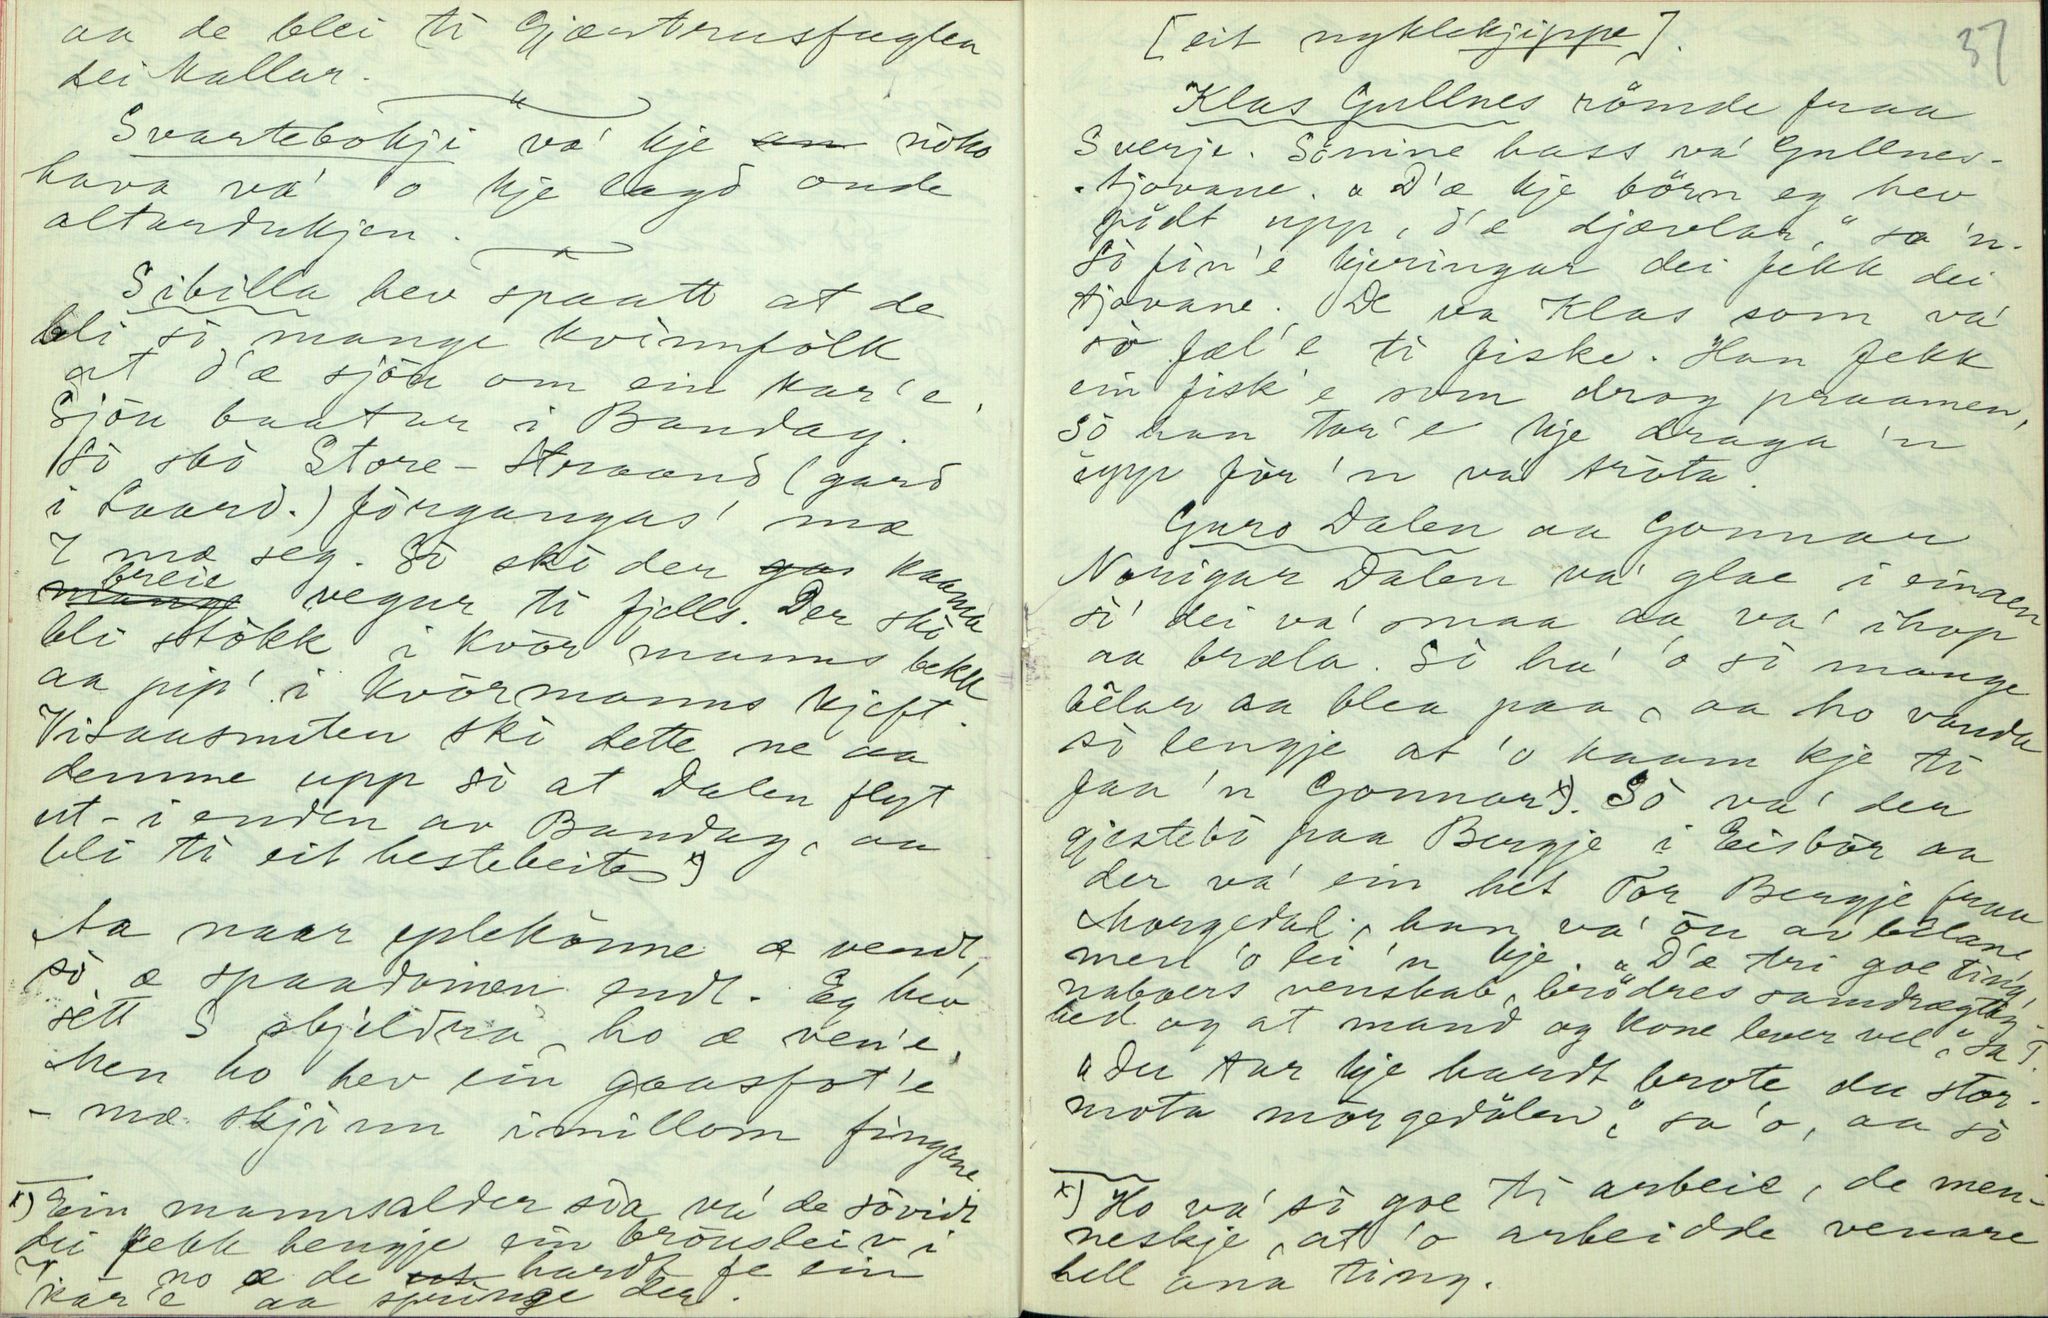 aa de blei ti Gjærtrusfuglen
dei kallar.
Svartebokji va' kje noko
hava va' o kje lagd onde
altardukjen.
Sibilla hev spaatt at de
bli so mange kvinnfolk
at d'æ sjöu om ein kar'e,
Sjöu baatar i Bandag.
So sko Store-Straand (gard
i Laard.) forgangas' mæ
7 mæ seg. So sko der kaama
breie vegur ti fjells. Der sko
bli stokk i kvor manns bekk
aa pip' i kvormanns kjeft.
Visaasnuten sko dette ne aa
demme upp so at Dalen flyt
ut-i enden av Bandag, aa
bli ti eit hestebeite x)
Aa naar eplekonne æ vendt,
so æ spaadomen endt. Eg hev
sett S skjildra, ho æ ven'e,
Men ho hev ein gaasfot'e
- mæ skjinn imillom fingane.
x) Ein mannsalder sia va' de sovidt
dei fekk hengje ein brousleiv i
no æ de hardt fe ein
kar'e aa springe der.
[eit nyklekjippe]. 37
Klas Gullnes römde fraa
Sverje. Sönine hass va' Gullnes-
-tjovane. "D'æ kje börn eg hev
födt upp, d'æ djævlar," sa 'n.
So fin'e kjeringar dei fekk dei
tjovane. De va Klas som va'
so fæl'e ti fiske. Han fekk
ein fisk'e som drog praamen,
So han tor'e kje draga 'n
upp för 'n va tröta.
Guro Dalen aa Gonnar
Norigar Dalen va' glae i einaen
si' dei va' smaa aa va' ihop
aa bræla. So ha' 'o so mange
belar aa blea paa, aa ho vanda
so lengje at 'o kaam kje ti
faa 'n Gonnar x). So va' der
gjestebo paa Bergje i Eisbor aa
der va' ein het Tor Bergje fraa
Morgedal, han va' ou av belane
men 'o lei 'n kje. "D'æ tri goe ting,
naboers venskab, brødres samdrægtig-
hed og at mand og kone lever vel," sa T.
"Du tar kje hardt brote, du stor-
mota morgedölen," sa 'o, aa so
x) Ho va' so goe ti arbeie, de men-
neskje, at 'o arbeidde venare
hell ana ting.